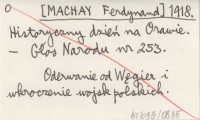 O [MACHAY Ferdynand] 1918.
Historyczny dzień na Orawie.
– Głos Narodu nr 253.
Oderwanie od Węgier i
wkroczenie wojsk polskich.